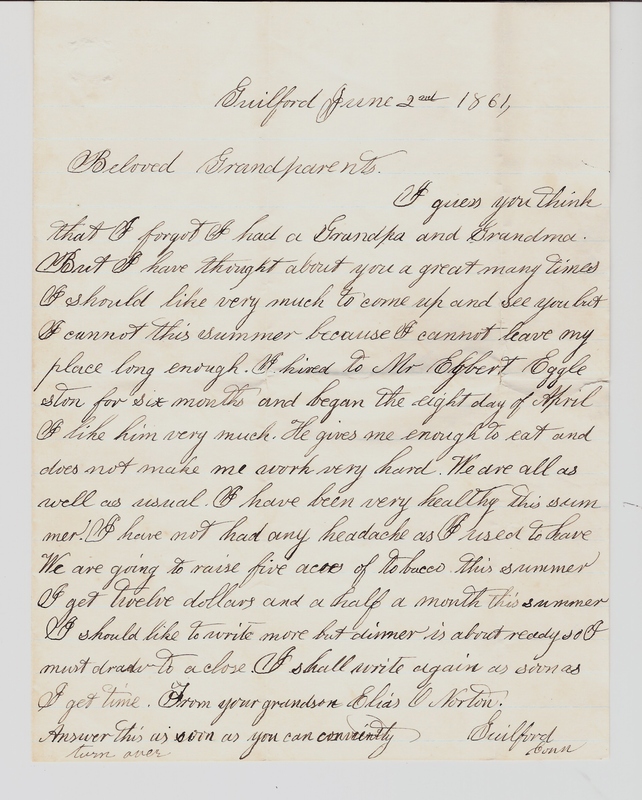 Guilford June 2nd 1861,
Beloved Grandparents.
I guess you think
that I forgot I had a Grandpa and Grandma.
But I have thought about you a great many times
I should like very much to come up and see you but
I cannot this summer because I cannot leave my
place long enough. I hired to Mr Elbert Eggle
ston for six months and began the eight day of April
I like him very much. He gives me enough to eat and
does not make me work very hard. We are all as
well as usual. I have been very healthy this sum
mer. I have not had any headache as I used to have
We are going to raise five acres of tobacco this summer
I get twelve dollars and a half a month this summer
I should like to write more but dinner is about ready so I
must draw to a close. I shall write again as soon as
I get time. From your grandson Elias O Norton.
Answer this as soon as you can conviently Guilford
turn over Conn